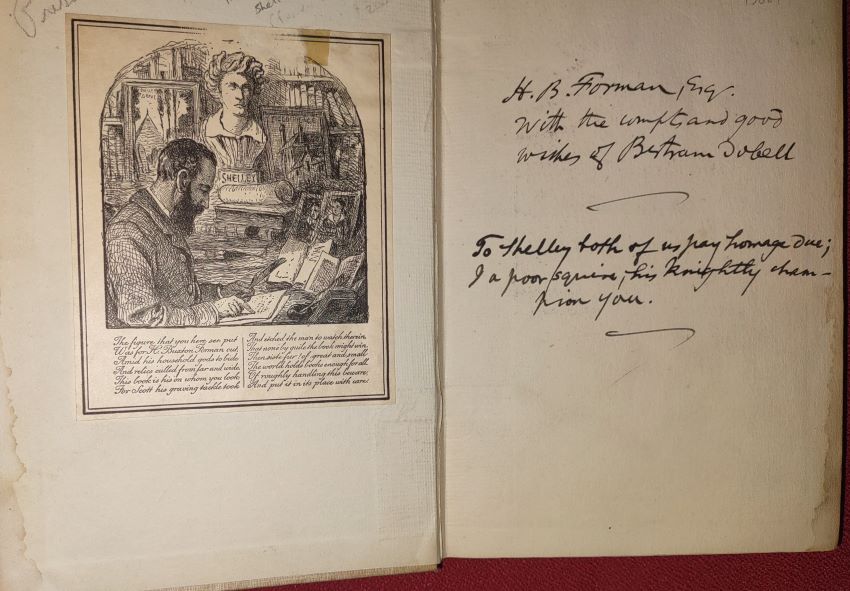 SHELLEY
The figure that you here see put
Was for H. Buxton Forman cut,
Amid his household gods to bide
And relics culled from far and wide.
This book is his on whom you look
For Scott his graving tackle took
And etched the man to watch therein
That none by guile the book might win.
Then siste fur! of great and small
The world holds books enough for all.
Of roughly handling this beware,
And put it in its place with care.
H. B. Forman, Esq.
With the compts and good
wishes of Bertram Dobell
To Shelley both of us pay homage due;
I a poor squire, his knightly cham-
pion you.